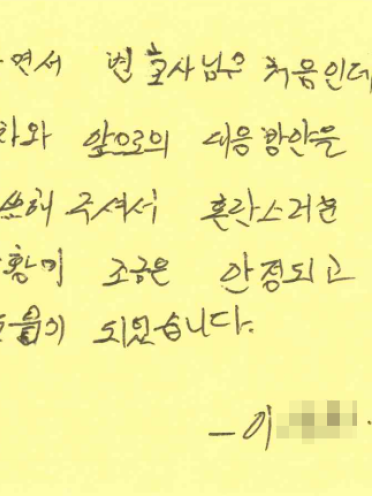 면서 변호사님은 처음인데
차와 앞으로의 대응방안을
해 주셔서 혼란스러운
황이 조금은 안정되고
움이 되었습니다.
- 이